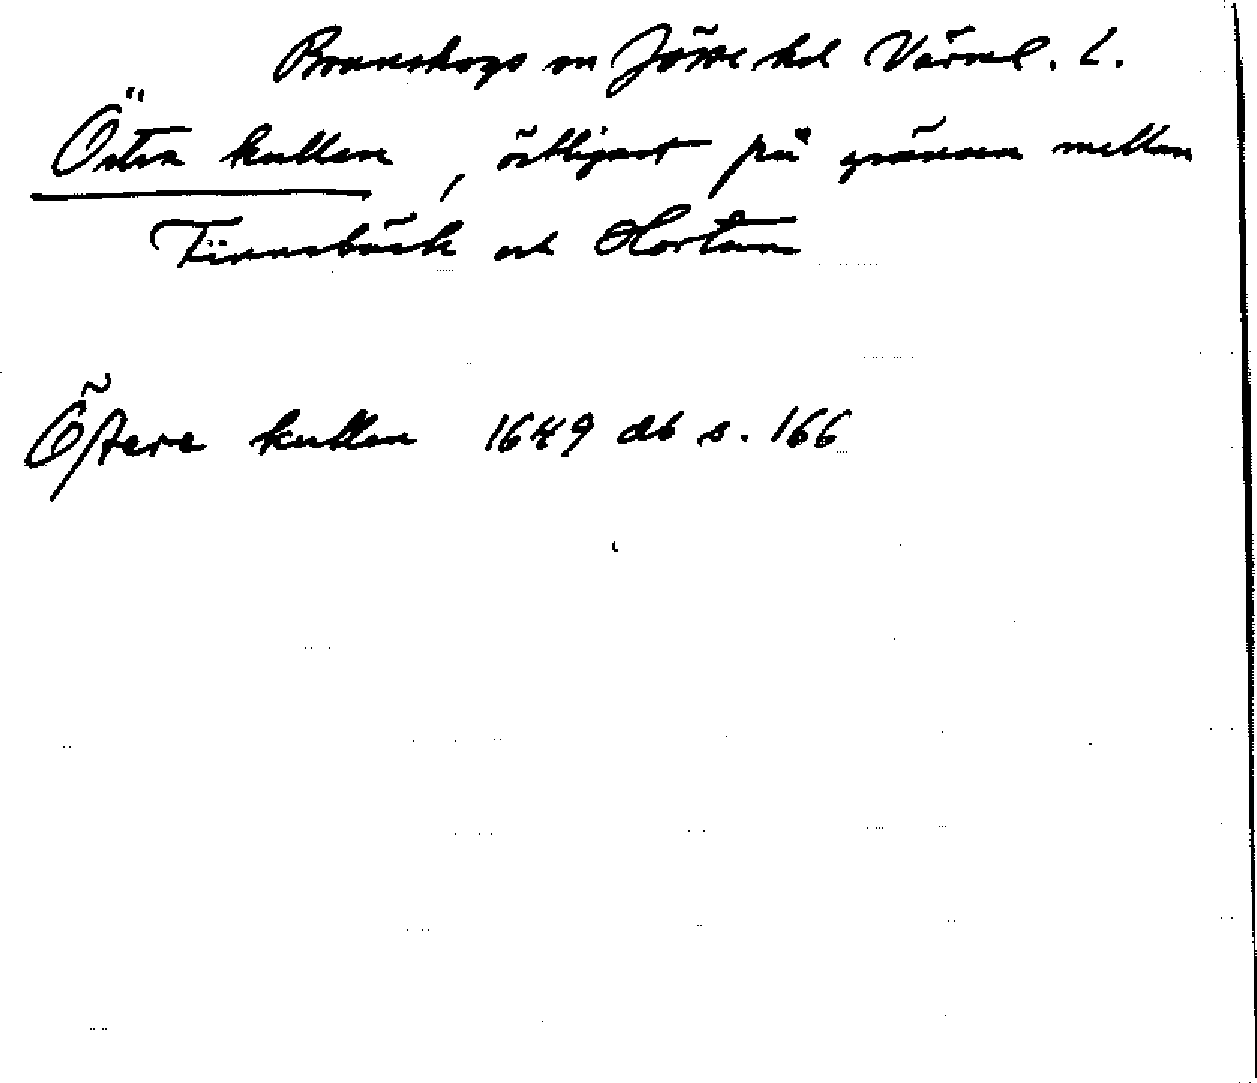 Brunskogs sn Jösse hd Värml. l.
Östra kullen, östligast på gränsen mellan
Finnsbäck och
Östere kullen 1649 db s. 166